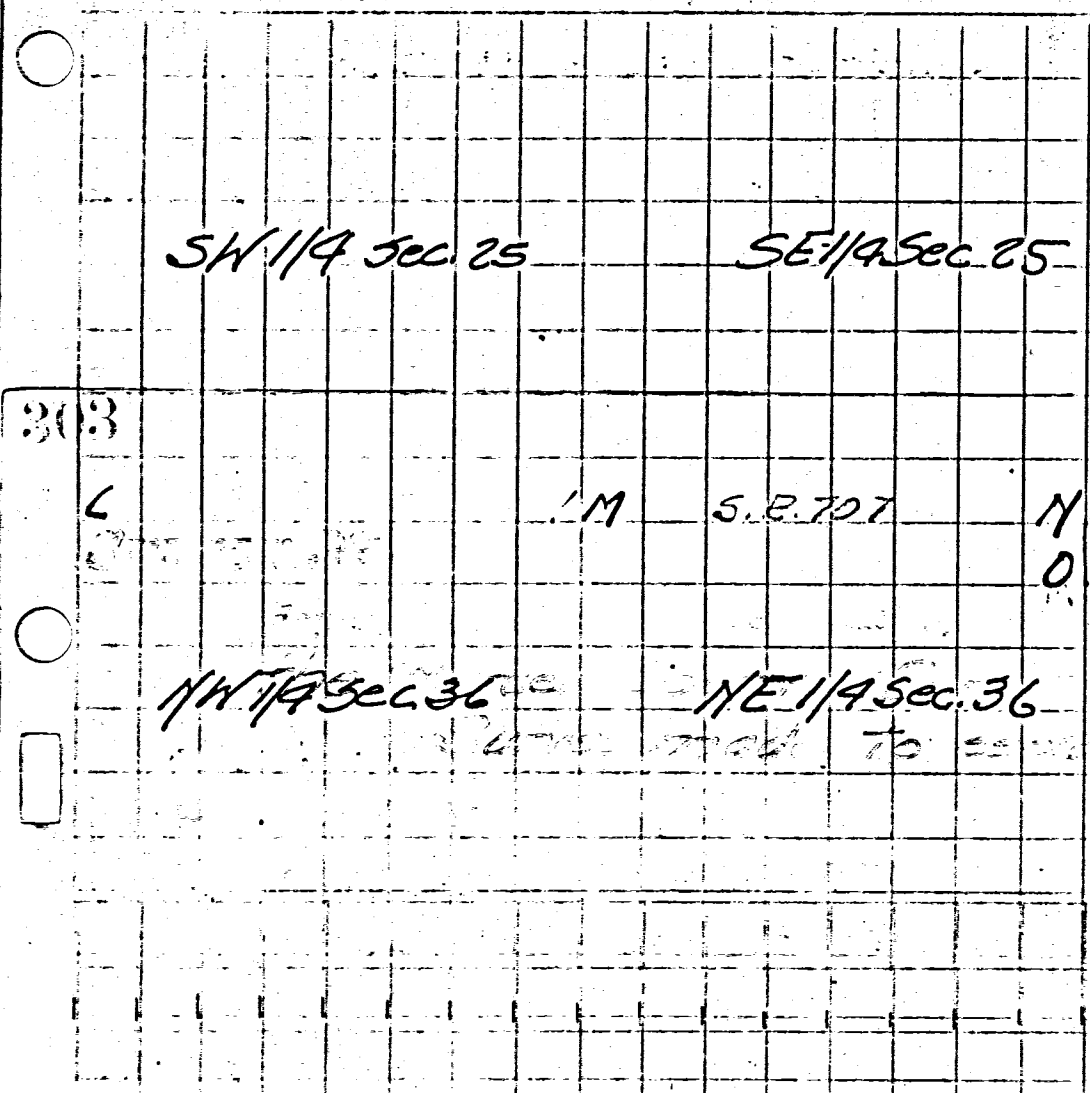 SW 1/4 Sec. 25 SE 1/4 Sec. 25
303
L M S.R. 707 N
O
NW 1/4 Sec. 36 NE 1/4 Sec. 36
to